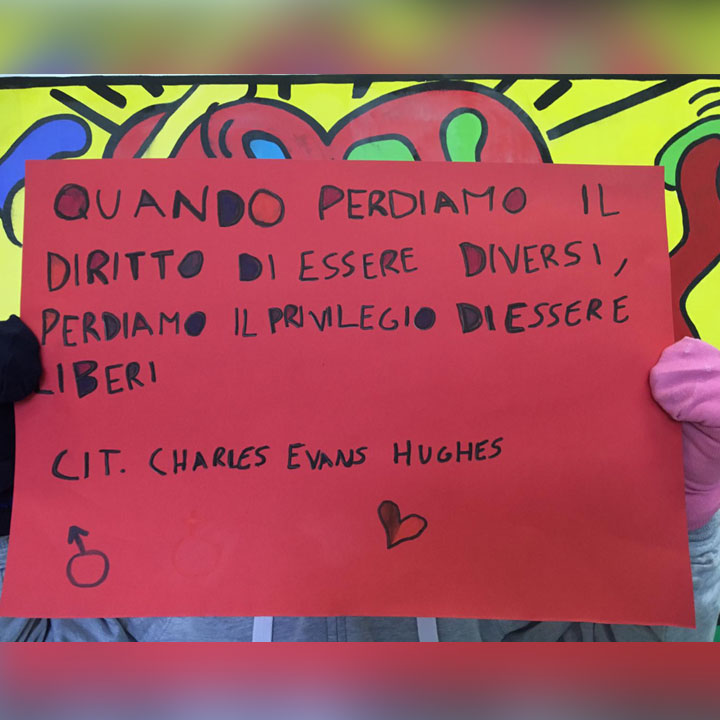 QUANDO PERDIAMO IL
DIRITTO DI ESSERE DIVERSI,
PERDIAMO IL PRIVILEGIO DI ESSERE
LIBERI
CIT. CHARLES EVANS HUGHES